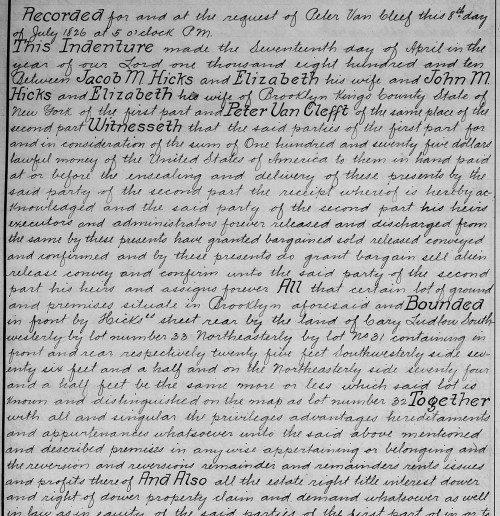 Recorded for and at the request of Peter Van Cleef this 8th day
of July 1826 at 5 o'clock P.M.
This Indenture made the Seventeenth day of April in the
year of our Lord one thousand eight hundred and ten
Between Jacob M. Hicks and Elizabeth his wife and John M.
Hicks and Elizabeth his wife of Brooklyn Kings County State of
New York of the first part and Peter Van Clefft of the same place of the
second part Witnesseth that the said parties of the first part for
and in consideration of the sum of One hundred and seventy five dollars
lawful money of the United States of America to them in hand paid
at or before the ensealing and delivery of these presents by the
said party of the second part the receipt whereof is hereby ac-
knowledged and the said party of the second part his heirs
executors and administrators forever released and discharged from
the same by these presents have granted bargained sold released conveyed
and confirmed and by these presents do grant bargain sell alien
release convey and confirm unto the said party of the second
part his heirs and assigns forever All that certain lot of ground
and premises situate in Brooklyn aforesaid and Bounded
in front by Hicks street rear by the land of Cary Ludlow South-
westerly by lot number 33 Northeasterly by lot No 31 containing in
front and rear respectively twenty five feet Southwesterly side sev-
enty six feet and a half and on the Northeasterly side seventy four
and a half feet be the same more or less which said lot is
known and distinguished on the map as lot number 32 Together
with all and singular the privileges advantages hereditaments
and appurtenances whatsoever unto the said above mentioned
and described premises in anywise appertaining or belonging and
the reversion and reversions remainder and remainders rents issues
and profits thereof And Also all the estate right title interest dower
and right of dower property claim and demand whatsoever as well
in law as in equity of the said parties of the first part of in or to